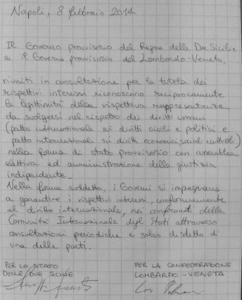 Napoli, 8 febbraio 2014
Il Governo provvisorio del Regno delle Due Sicilie
e il Governo provvisorio del Lombardo-Veneto,
riuniti in consultazione per la tutela dei
rispettivi interessi riconoscono reciprocamente
la legittimità della rispettiva rappresentanza
da svolgersi nel rispetto dei diritti umani
(patto internazionale sui diritti civili e politici e
patto internazionale sui diritti economici sociali culturali)
nella forma di stato provvisorio con assemblea
elettiva ed amministrazione della giustizia
indipendente.
Nella forma suddetta, i Governi si impegnano
a garantire i rispettivi interessi, conformemente
al diritto internazionale, nei confronti della
Comunità Internazionale degli Stati attraverso
consultazioni periodiche e solo disdetta di
una delle parti.
PER LO STATO
DELLE DUE SICILIE
PER LA CONFEDERAZIONE
LOMBARDO-VENETA